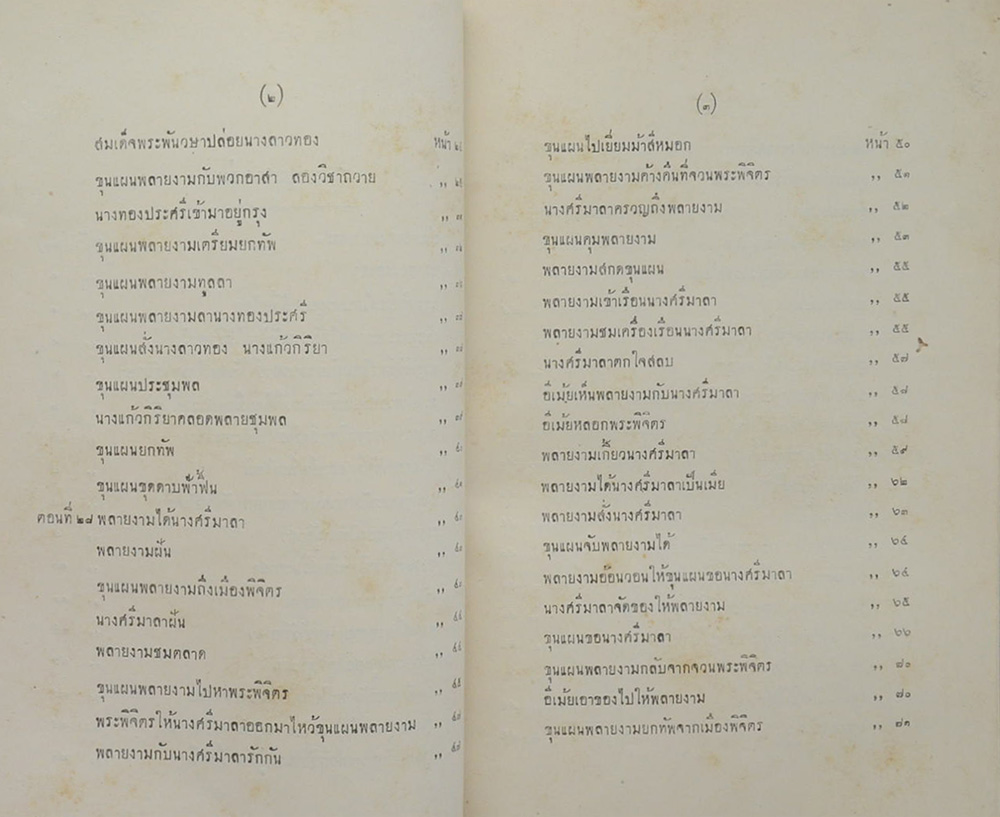 (๒)
สมเด็จพระพันวษาปล่อยนางลาวทอง หน้า
ขุนแผนพลายงามกับพวกอาสา ลองวิชาถวาย ,,
นางทองประศรีเข้ามาอยู่กรุง ,,
ขุนแผนพลายงามเตรียมยกทัพ ,,
ขุนแผนพลายงามทูลลา ,,
ขุนแผนพลายงามลานางทองประศรี ,,
ขุนแผนสั่งนางลาวทอง นางแก้วกิริยา ,,
ขุนแผนประชุมพล ,,
นางแก้วกิริยาคลอดพลายชุมพล ,,
ขุนแผนยกทัพ ,,
ขุนแผนขุดดาบฟ้าฟื้น ,,
ตอนที่ ๒๘ พลายงามได้นางศรีมาลา ,,
พลายงามฝัน ,,
ขุนแผนพลายงามถึงเมืองพิจิตร ,,
นางศรีมาลาฝัน ,,
พลายงามชมตลาด ,,
ขุนแผนพลายงามไปหาพระพิจิตร ,,
พระพิจิตรให้นางศรีมาลาออกมาไหว้ขุนแผนพลายงาม ,,
พลายงามกับนางศรีมาลารักกัน ,,
(๓)
ขุนแผนไปเยี่ยมม้าสีหมอก หน้า ๕๐
ขุนแผนพลายงามค้างคืนที่จวนพระพิจิตร ,, ๕๑
นางศรีมาลาครวญถึงพลายงาม ,, ๕๒
ขุนแผนคุมพลายงาม ,, ๕๓
พลายงามสกดขุนแผน ,, ๕๕
พลายงามเข้าเรือนนางศรีมาลา ,, ๕๕
พลายงามชมเครื่องเรือนนางศรีมาลา ,, ๕๕
นางศรีมาลาตกใจสลบ ,, ๕๗
อีเม้ยเห็นพลายงามกับนางศรีมาลา ,, ๕๘
อีเม้ยหลอกพระพิจิตร ,, ๕๘
พลายงามเกี้ยวนางศรีมาลา ,, ๕๙
พลายงามได้นางศรีมาลาเป็นเมีย ,, ๖๒
พลายงามสั่งนางศรีมาลา ,, ๖๓
ขุนแผนจับพลายงามได้ ,, ๖๔
พลายงามอ้อนวอนให้ขุนแผนขอนางศรีมาลา ,, ๖๔
นางศรีมาลาจัดของให้พลายงาม ,, ๖๕
ขุนแผนขอนางศรีมาลา ,, ๖๖
ขุนแผนพลายงามกลับจากจวนพระพิจิตร ,,
อีเม้ยเอาของไปให้พลายงาม ,, ๗๐
ขุนแผนพลายงามยกทัพจากเมืองพิจิตร ,, ๗๑